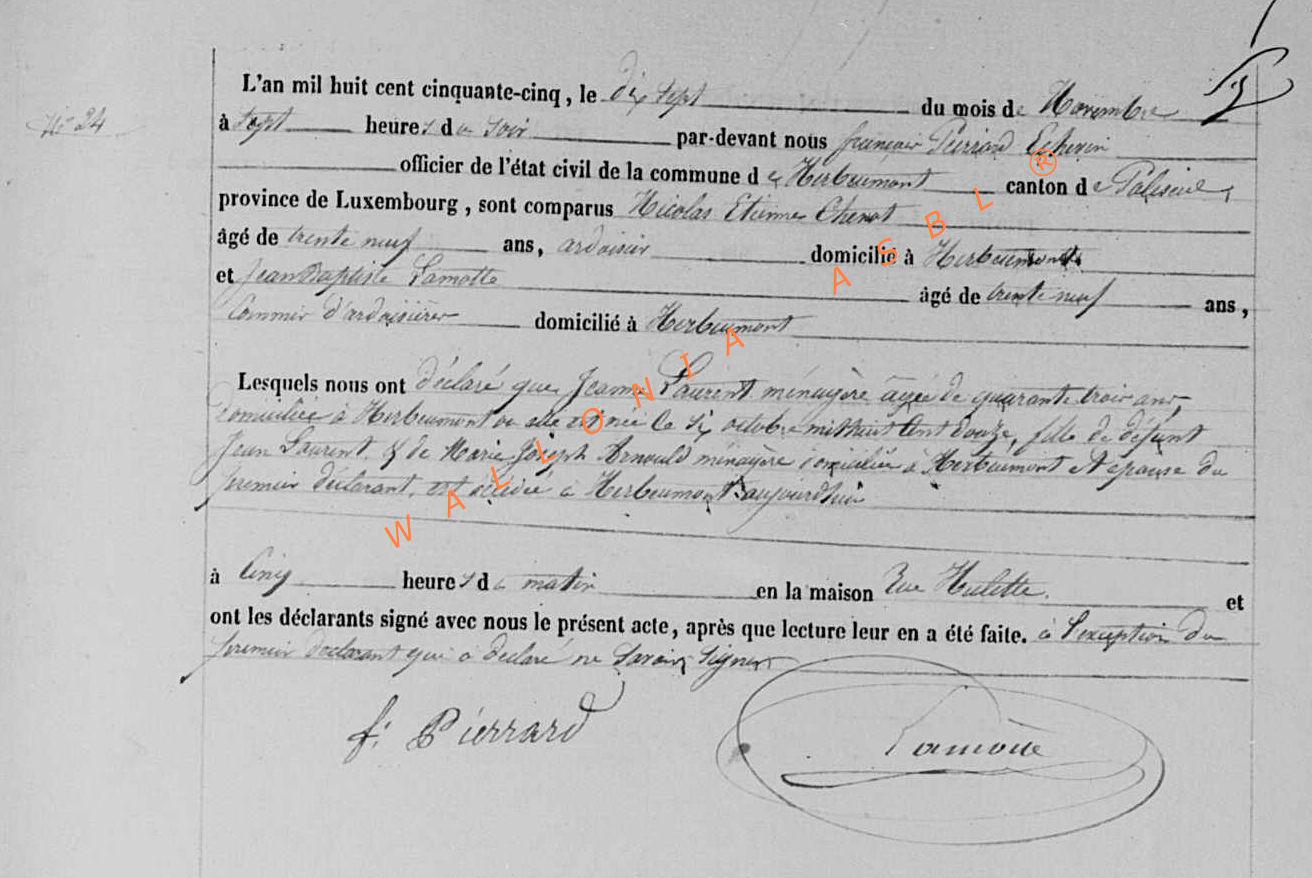 N° 24
L'an mil huit cent cinquante-cinq, le dix sept du mois de Novembre
à sept heures du soir par-devant nous françois Pierrard Echevin
officier de l'état civil de la commune de Herbeumont canton de Paliseul,
province de Luxembourg, sont comparus Nicolas Etienne Chenot
âgé de trente neuf ans, ardoisier domicilié à Herbeumont
et Jean Baptiste Lamotte âgé de trente neuf ans,
Commis d'ardoisières domicilié à Herbeumont
Lesquels nous ont déclaré que Jeanne Laurent ménagère âgée de quarante trois ans,
domiciliée à Herbeumont où elle est née le six octobre mil huit cent douze, fille de défunt
Jean Laurent & de Marie Joseph Arnould ménagère domiciliée à Herbeumont et épouse du
premier déclarant, est décédée à Herbeumont aujourd'hui
à Cinq heures du matin en la maison Rue Hulette. et
ont les déclarants signé avec nous le présent acte, après que lecture leur en a été faite. à l'exception du
premier déclarant qui a déclaré ne savoir signer
f. Pierrard
Lamotte
WALLONIA ASBL ®